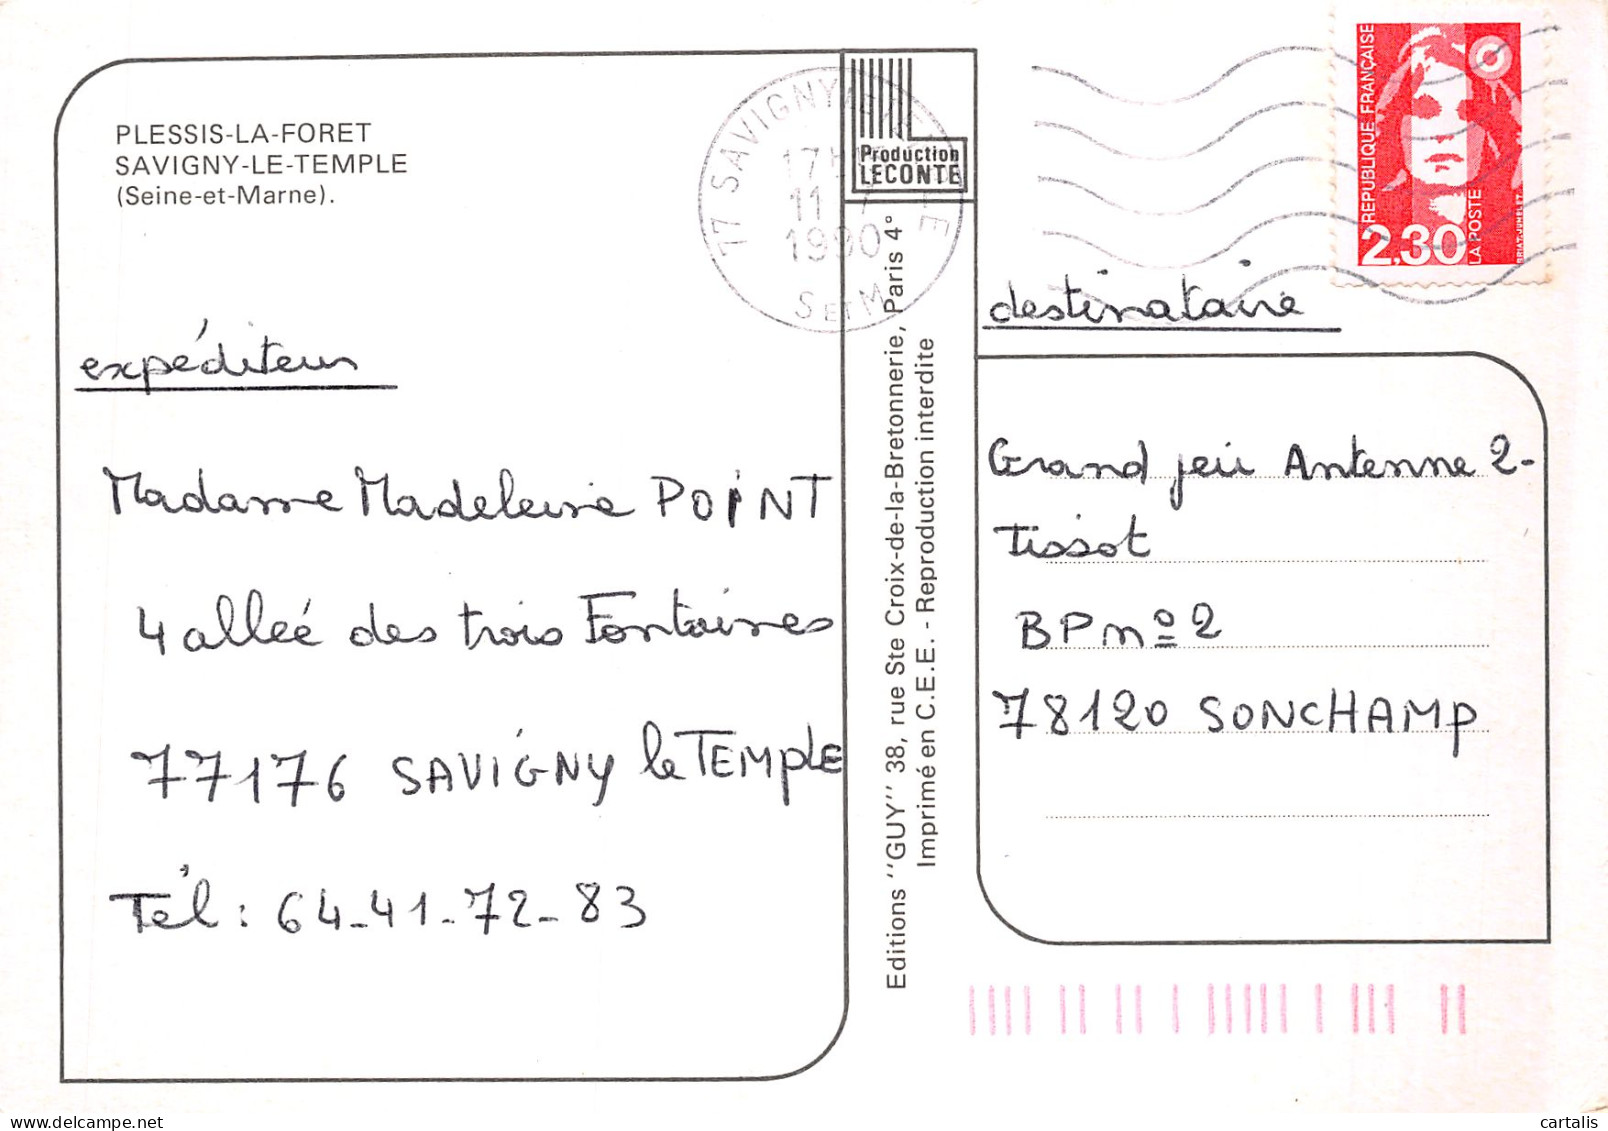 PLESSIS-LA-FORET
SAVIGNY-LE-TEMPLE
(Seine-et-Marne).
expéditeur
Madame Madeleine POINT
4 allée des trois Fontaines
77176 SAVIGNY le TEMPLE
Tél : 64-41-72-83
77 SAVIGNY
17H
11
1990
S ET M
Production
LECONTE
Editions ''GUY'' 38, rue Ste Croix-de-la-Bretonnerie, Paris 4°
Imprimé en C.E.E. - Reproduction interdite
REPUBLIQUE FRANÇAISE
2,30
LA POSTE
BRIAT-JUMELET
destinataire
Grand jeu Antenne 2-
Tissot
BP nº 2
78120 SONCHAMP
cartalis
delcampe.net